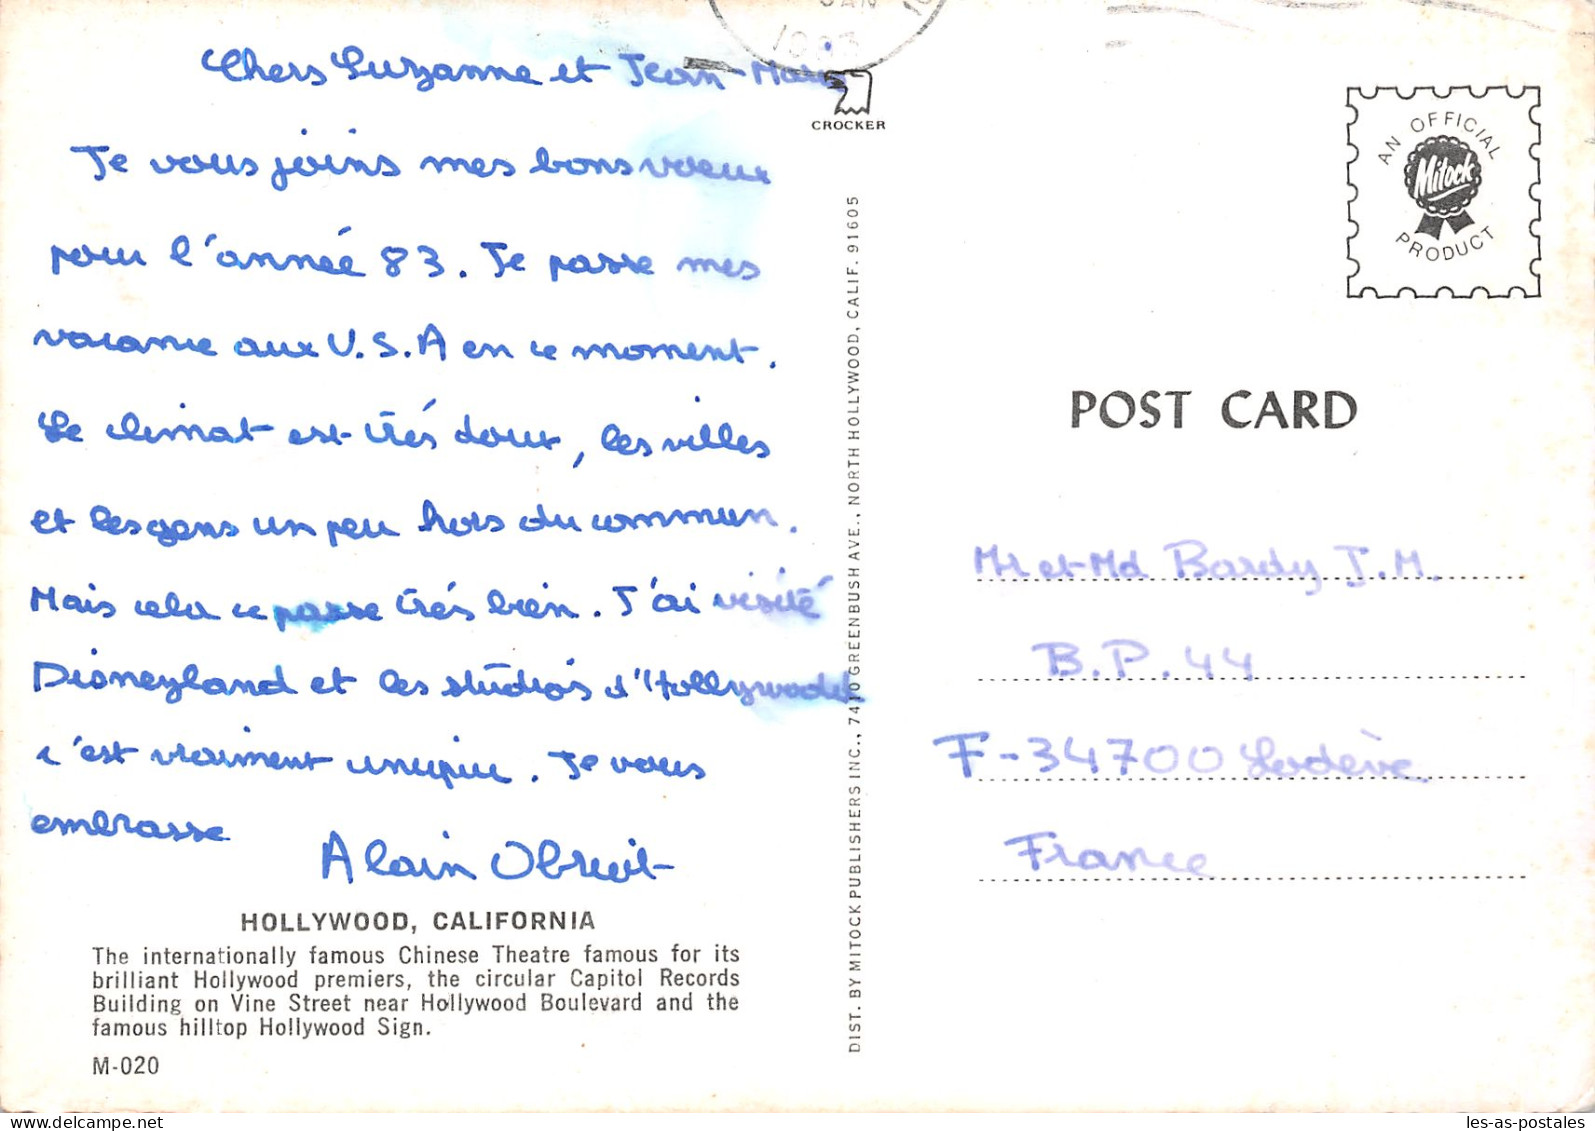 JAN
1983
Chers Suzanne et Jean-Marie
Je vous joins mes bons voeux
pour l'année 83. Je passe mes
vacance aux U.S.A en ce moment.
Le climat est très doux, les villes
et les gens un peu hors du commun.
Mais cela ce passe très bien. J'ai visité
Disneyland et les stúdios d'Hollywood
c'est vraiment unique. Je vous
embrasse
Alain Obreit
HOLLYWOOD, CALIFORNIA
The internationally famous Chinese Theatre famous for its
brilliant Hollywood premiers, the circular Capitol Records
Building on Vine Street near Hollywood Boulevard and the
famous hilltop Hollywood Sign.
M-020
CROCKER
DIST. BY MITOCK PUBLISHERS INC., 7410 GREENBUSH AVE., NORTH HOLLYWOOD, CALIF. 91605
AN OFFICIAL
Mitock
PRODUCT
POST CARD
Mr et Md Bardy J.M.
B.P. 44
F-34700 Lodève
France
les-as-postales
delcampe.net